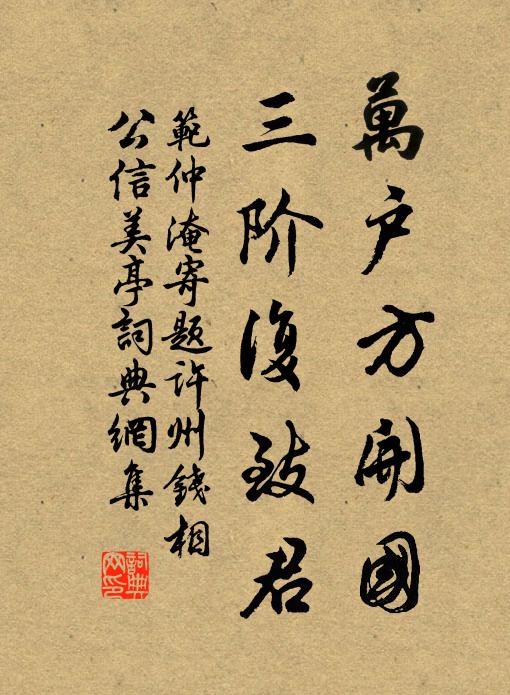 萬户方開國
三阶復致君
範仲淹寄題许州錢相
公信美亭詞典網集
詞典網印